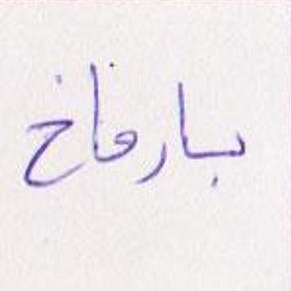 بارفاخ